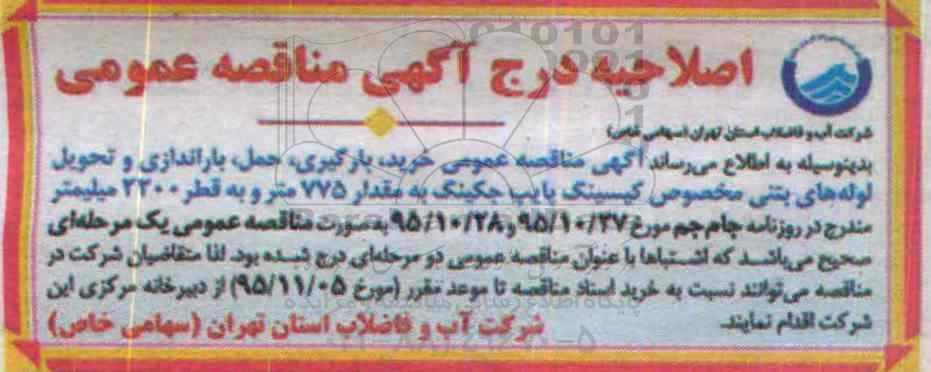 اصلاحیه درج آگهی مناقصه عمومی
شرکت آب و فاضلاب استان تهران (سهامی خاص)
بدینوسیله به اطلاع می‌رساند آگهی مناقصه عمومی خرید، بارگیری، حمل، باراندازی و تحویل
لوله‌های بتنی مخصوص کیسینگ پایپ جکینگ به مقدار ۷۷۵ متر و به قطر ۲۲۰۰ میلیمتر
مندرج در روزنامه جام جم مورخ ۹۵/۱۰/۲۷ و ۹۵/۱۰/۲۸ به صورت مناقصه عمومی یک مرحله‌ای
صحیح می‌باشد که اشتباها با عنوان مناقصه عمومی دو مرحله‌ای درج شده بود. لذا متقاضیان شرکت در
مناقصه می‌توانند نسبت به خرید اسناد مناقصه تا موعد مقرر (مورخ ۹۵/۱۱/۰۵) از دبیرخانه مرکزی این
شرکت اقدام نمایند.
شرکت آب و فاضلاب استان تهران (سهامی خاص)